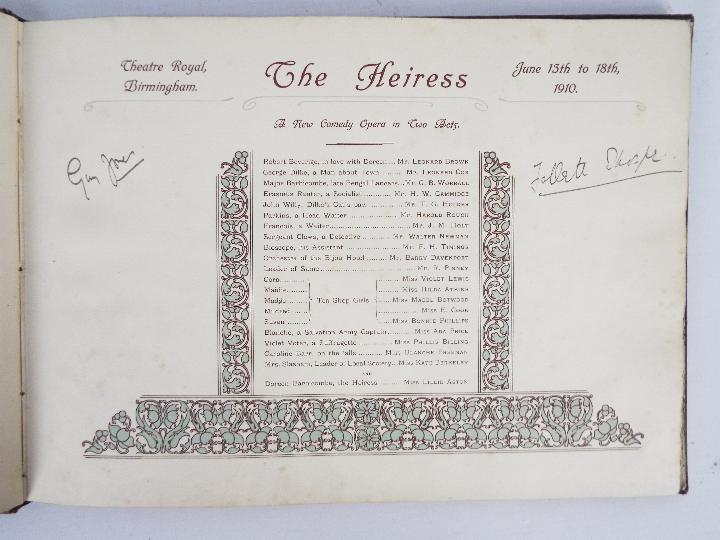 Theatre Royal,
Birmingham.
The Heiress
June 13th to 18th,
1910.
A New Comedy Opera in Two Acts.
Robert Beverige, in love with Doreen Mr. Leonard Brown
George Dilke, a Man about Town Mr. Leonard Cox
Major Barbicombe, late Bengal Lancers Mr. C. B. Worrall
Erasmus Renter, a Socialist Mr. H. W. Gammidge
John Willy, Dilke's Cat's paw Mr. T. G. Hodges
Parkins, a Head Waiter Mr. Harold Rough
Francois, a Waiter Mr. J. M. Holt
Sergeant Clews, a Detective Mr. Walter Newman
Bioscope, his Assistant Mr. F. H. Timings
Orchestra of the Bijou Hotel Mr. Barry Davenport
Leader of Same Mr. R. Pinney
Cora Miss Violet Lewis
Maidie Miss Hilda Atkins
Madge Tea Shop Girls Miss Mabel Botwood
Miss E. Cook
Miss Bonnie Phillips
Blanche, a Salvation Army Captain Miss Ada Price
Violet Voter, a Suffragette Miss Phyllis Billing
Caroline Earl, on the halls Miss Blanche Freeman
Mrs. Slasham, Leader of Local Society Miss Kate Berkeley
AND
Doreen Barbicombe, the Heiress Miss Lillie Aston
Guy Jones